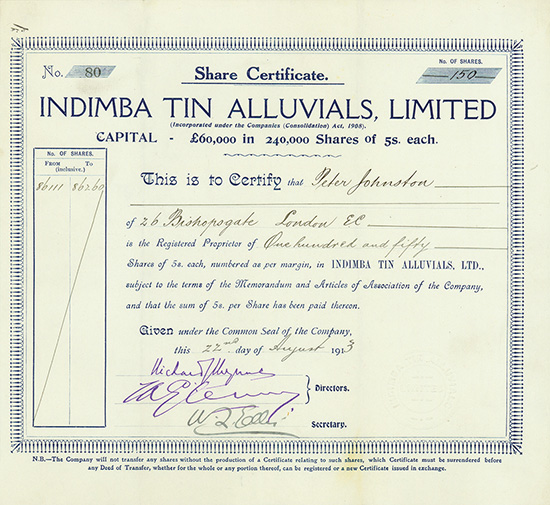 No. 80
Share Certificate.
No. OF SHARES.
150
INDIMBA TIN ALLUVIALS, LIMITED
(Incorporated under the Companies (Consolidation) Act, 1908).
CAPITAL - £60,000 in 240,000 Shares of 5s. each.
No. OF SHARES.
FROM TO
(inclusive.)
86111 86260
This is to Certify that Peter Johnston
of 26 Bishopsgate London EC
is the Registered Proprietor of One hundred and fifty
Shares of 5s. each, numbered as per margin, in INDIMBA TIN ALLUVIALS, LTD.,
subject to the terms of the Memorandum and Articles of Association of the Company,
and that the sum of 5s. per Share has been paid thereon.
Given under the Common Seal of the Company,
this 22nd day of August 1913
Richard
Directors.
Secretary.
N.B.—The Company will not transfer any shares without the production of a Certificate relating to such shares, which Certificate must be surrendered before
any Deed of Transfer, whether for the whole or any portion thereof, can be registered or a new Certificate issued in exchange.